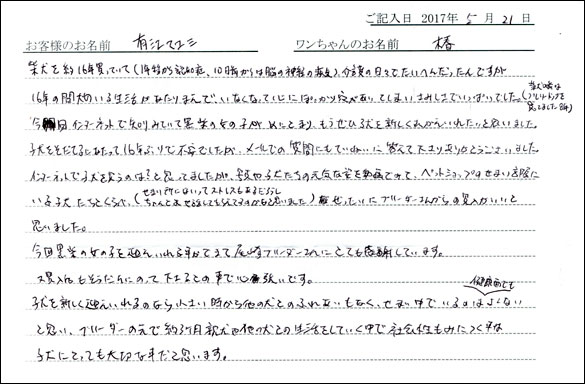 ご記入日 2017年 5月 21日
お客様のお名前 有江マユミ ワンちゃんのお名前 椿
柴犬を約16年買っていて(1年程から認知症、10日前からは脳の神経の)介護の日々でたいへんだったんですが
16年の間犬のいる生活があたりまえでいなくなって心にぽっかり穴があいてしまい さみしさでいっぱいでした。
今 インターネットで 黒柴の女の子が目にとまり、もうぜひ子犬を新しくむかえいれたいと思いました。
子犬をそだてるにあたって16年ぶりで不安でしたが、メールでの質問にもていねいに答えて下さりありがとうございました。
インターネットで子犬を買うのは?と思ってましたが、子犬たちの元気な姿を動画でみて、ペットショップのせまい部屋に
いる子犬たちとくらべ、(せまい中にいってストレスもあるだろうし ちゃんと)ぜったいにブリーダーさんからの購入がいいと
思いました。
今回黒柴の女の子を迎えいれる事ができて 尾崎ブリーダーさんにとても感謝しています。
購入後もそうだんにのって下さるとの事で心強いです。
子犬を新しく迎えいれるのなら、小さい時から他の犬とのふれあいもなく、せまい中でいるのは健康面でもよくない
と思い、ブリーダーの元で約3ヶ月親犬や他の犬との生活をしていく中で社会性もみにつく事は
子犬にとっても大切な事だと思います。